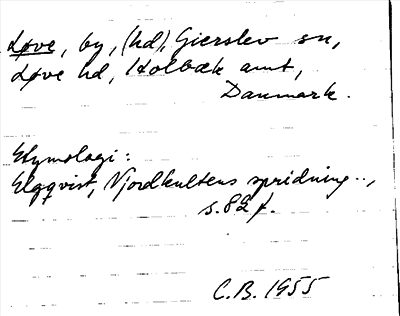 Løve, by, (hd), Gierslev sn,
Løve hd, Holbæk amt,
Danmark.
Etymologi:
Elqvist, Njordkultens spridning..,
s. 82 f.
C.B. 1955